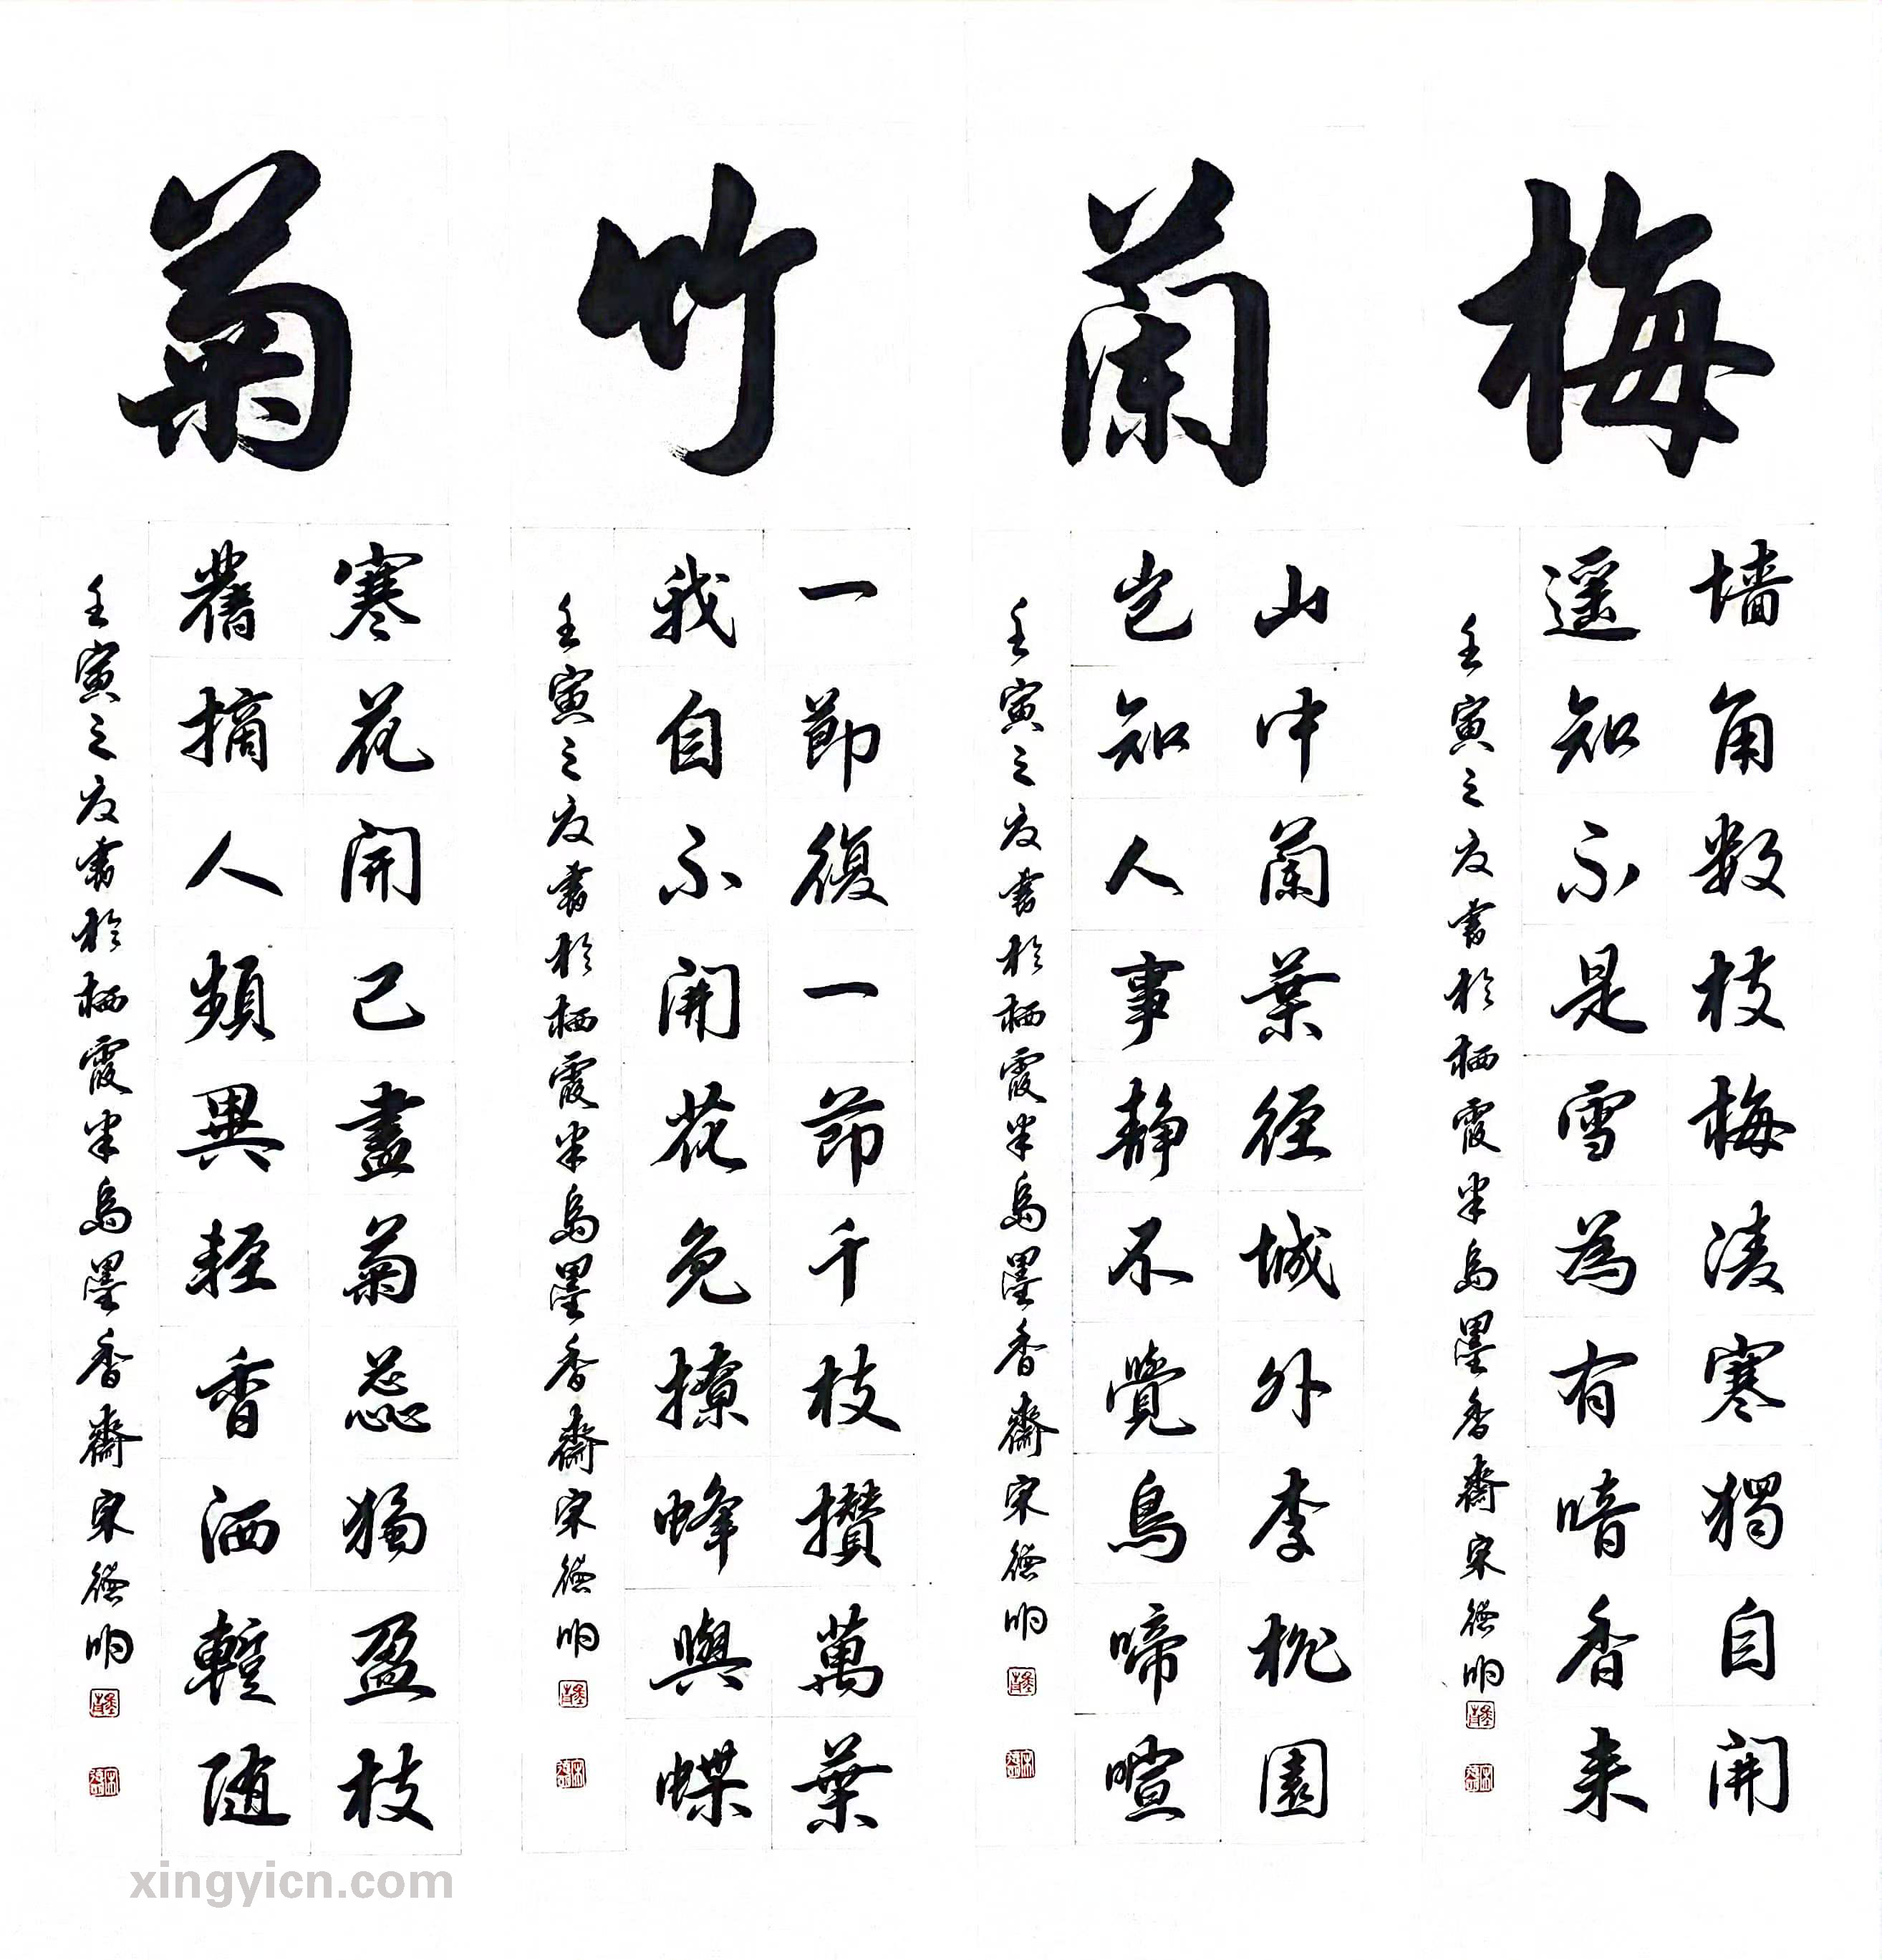 梅
墙角数枝梅淩寒獨自開
遥知不是雪為有暗香来
壬寅之夏書於栖霞半島墨香齋宋德明
蘭
山中蘭葉徑城外李桃園
岂知人事静不覺鳥啼喧
壬寅之夏書於栖霞半島墨香齋宋德明
竹
一節復一節千枝攢萬葉
我自不開花免撩蜂與蝶
壬寅之夏書於栖霞半島墨香齋宋德明
菊
寒花開已盡菊蕊獨盈枝
舊摘人頻異輕香酒暫随
壬寅之夏書於栖霞半島墨香齋宋德明
xingyicn.com